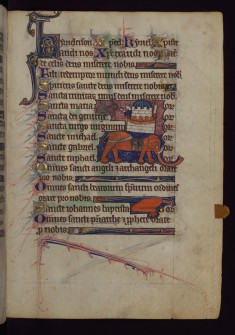 Kyrieleyson Xpe Kyrieleyson Xpiste
audi nos Xpe exaudi nos Pater
de celis deus miserere nobis
Fili redemptor mundi deus miserere nob
Spiritus sancte deus miserere nobis
Sancta trinitas unus deus miserere nob
Sancta maria or
Sancta dei genitrix or
Sancta virgo virginum or
Sancte michael or
Sancte gabriel or
Sancte raphael or
Omnes sancti angeli et archangeli orate
pro nobis
Omnes sancti beatorum spirituum ordines
orate pro nobis
Sancte iohannes baptista or
Omnes sancti patriarche et prophete orate
p nobis